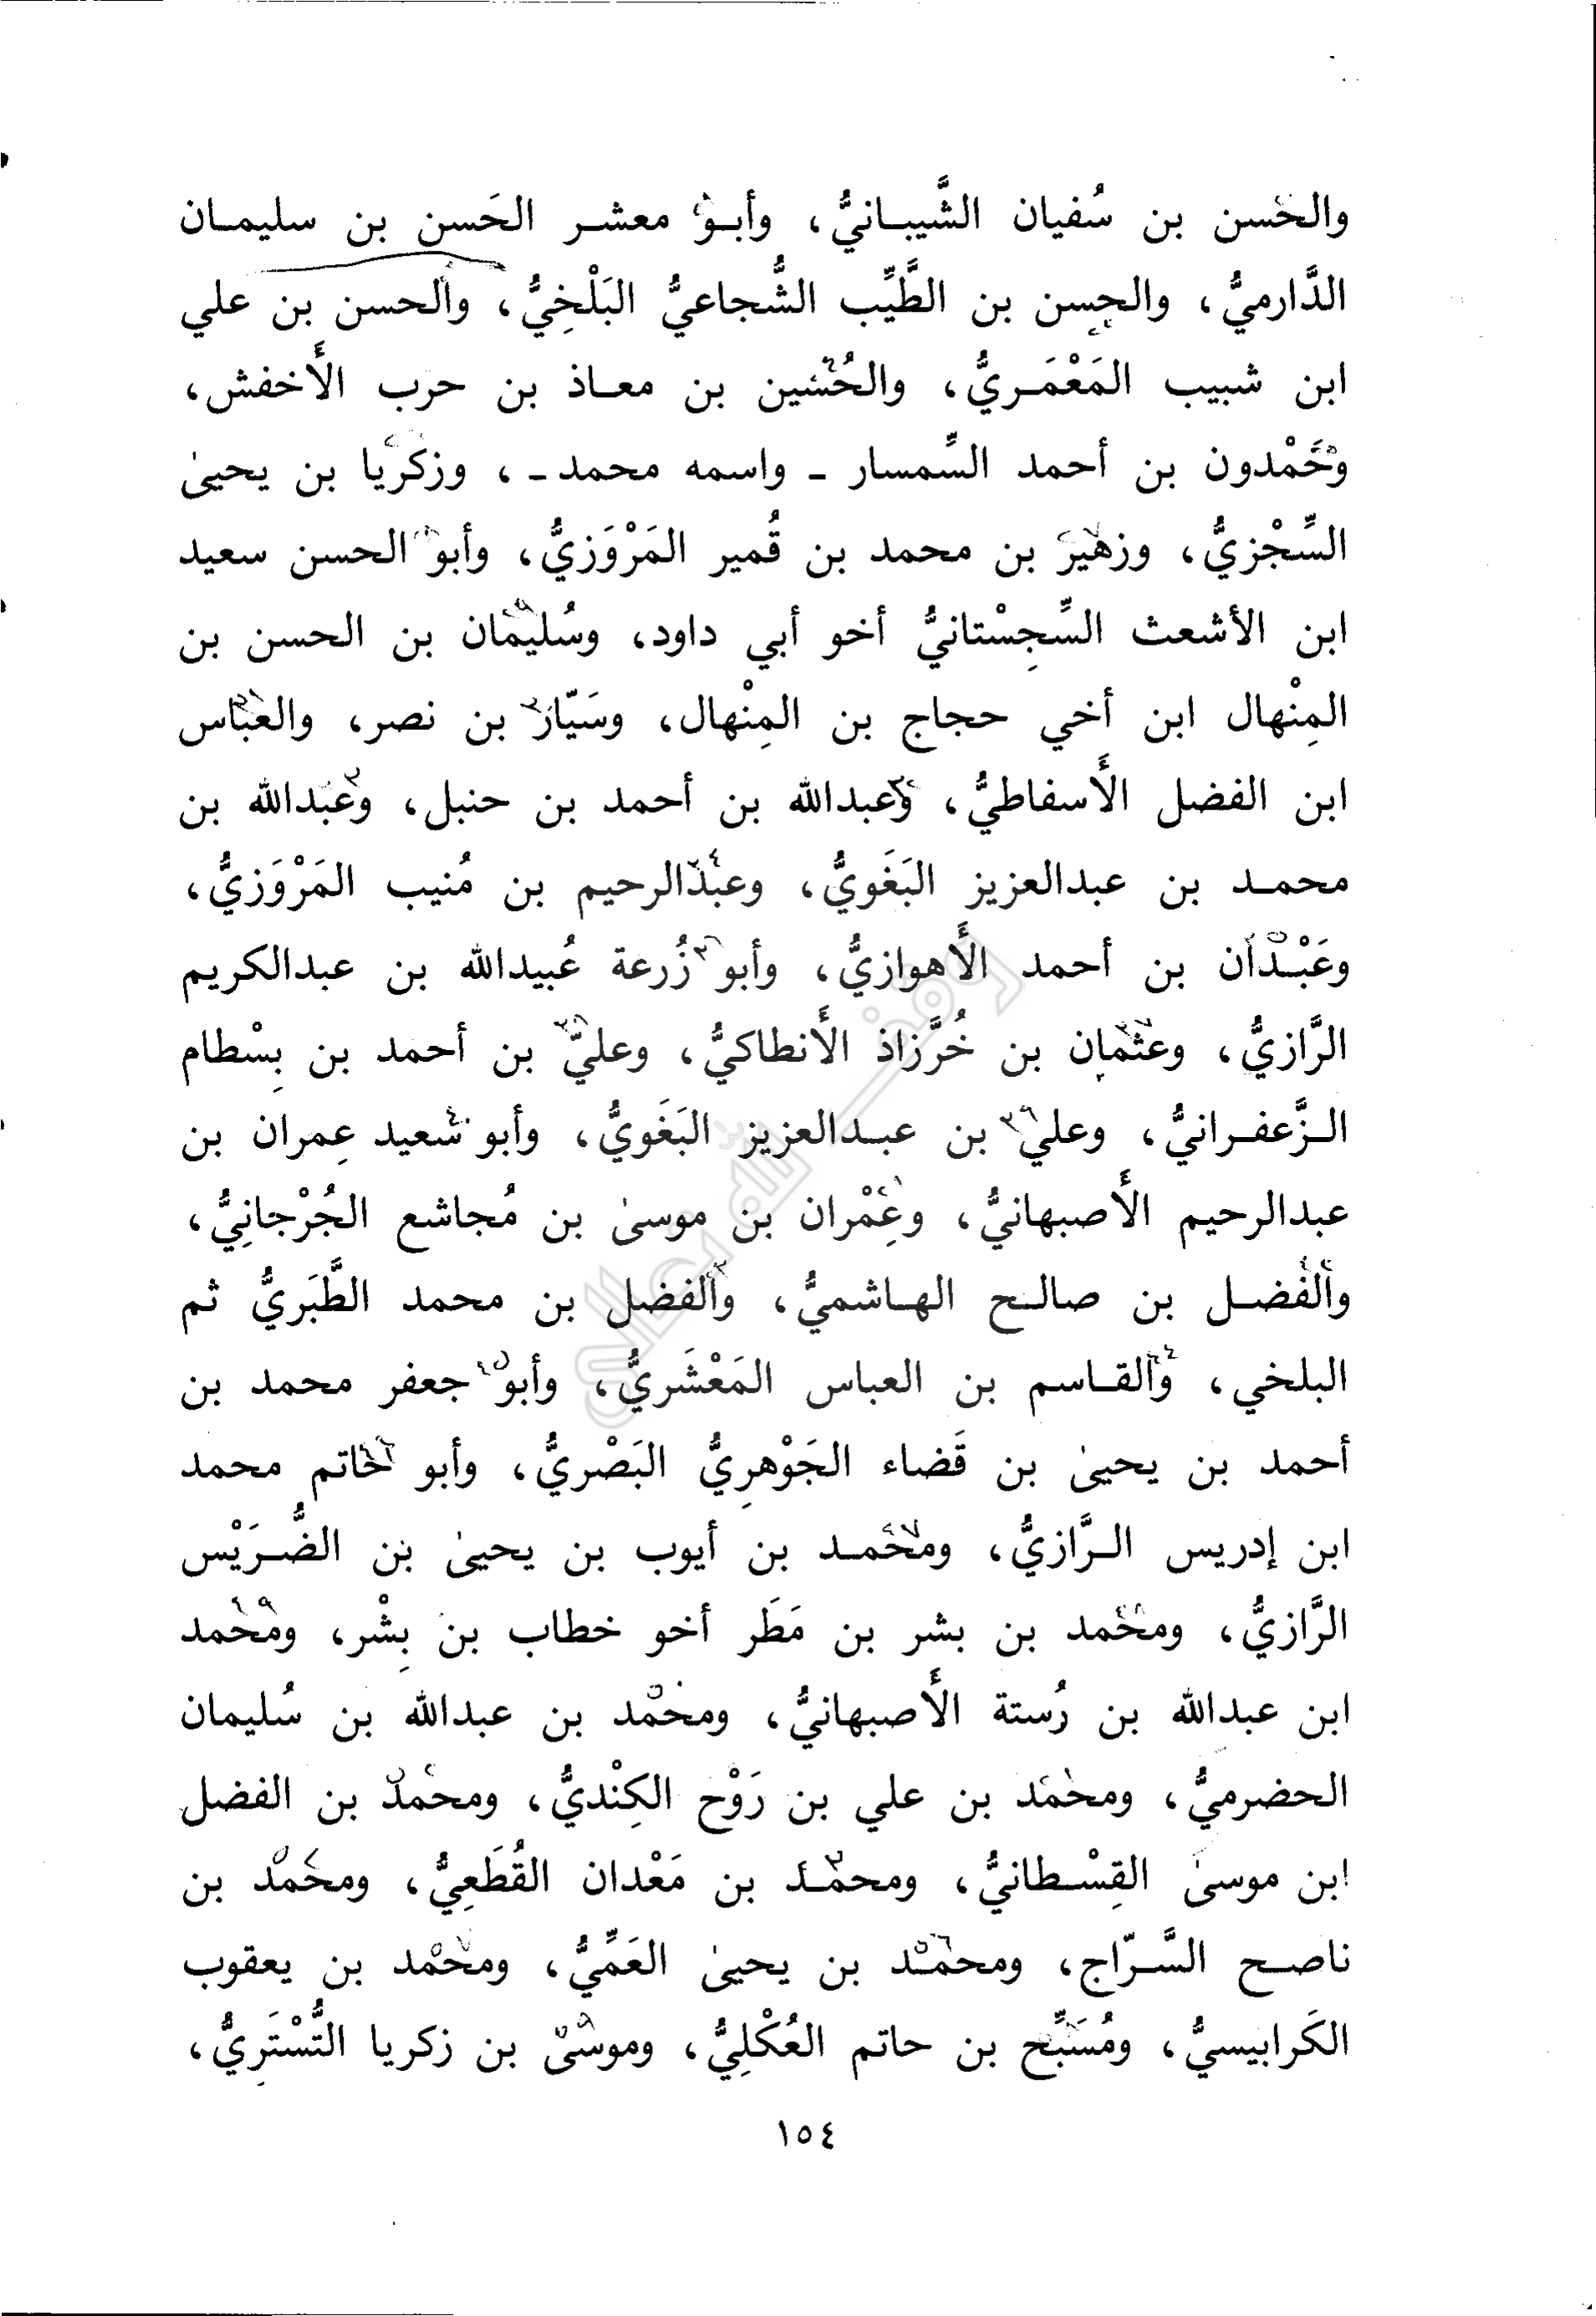 والحسن بن سُفيان الشَّيبانيُّ، وأبو معشر الحَسن بن سليمان
الدَّارميُّ، والحسن بن الطَّيِّب الشُّجاعيُّ البَلْخِيُّ، والحسن بن علي
ابن شبيب المَعْمَريُّ، والحُسين بن معاذ بن حرب الأَخفش،
وحَمْدون بن أحمد السِّمسار - واسمه محمد -، وزكريا بن يحيىٰ
السِّجْزيُّ، وزهير بن محمد بن قُمير المَرْوَزيُّ، وأبو الحسن سعيد
ابن الأشعث السِّجِسْتانيُّ أخو أبي داود، وسُليمان بن الحسن بن
المِنْهال ابن أخي حجاج بن المِنْهال، وسَيّار بن نصر، والعباس
ابن الفضل الأَسفاطيُّ، وعبدالله بن أحمد بن حنبل، وعبدالله بن
محمد بن عبدالعزيز البَغَويُّ، وعبدالرحيم بن مُنيب المَرْوَزيُّ،
وعَبْدان بن أحمد الأَهوازيُّ، وأبو زُرعة عُبيدالله بن عبدالكريم
الرَّازيُّ، وعثمان بن خُرَّزاذ الأَنطاكيُّ، وعليّ بن أحمد بن بِسْطام
الزَّعفرانيُّ، وعلي بن عبدالعزيز البَغَويُّ، وأبو سعيد عِمران بن
عبدالرحيم الأَصبهانيُّ، وعِمْران بن موسىٰ بن مُجاشع الجُرْجانِيُّ،
والفضل بن صالح الهاشميُّ، والفضل بن محمد الطَّبَريُّ ثم
البلخي، والقاسم بن العباس المَعْشَريُّ، وأبو جعفر محمد بن
أحمد بن يحيىٰ بن قَضاء الجَوْهرِيُّ البَصْريُّ، وأبو حاتم محمد
ابن إدريس الرَّازيُّ، ومحمد بن أيوب بن يحيىٰ بن الضُّرَيْس
الرَّازيُّ، ومحمد بن بشر بن مَطَر أخو خطاب بن بِشْر، ومحمد
ابن عبدالله بن رُستة الأَصبهانيُّ، ومحمد بن عبدالله بن سُليمان
الحضرميُّ، ومحمد بن علي بن رَوْح الكِنْديُّ، ومحمد بن الفضل
ابن موسىٰ القِسْطانيُّ، ومحمد بن مَعْدان القُطَعِيُّ، ومحمد بن
ناصح السَّرّاج، ومحمد بن يحيىٰ العَمِّيُّ، ومحمد بن يعقوب
الكَرابيسيُّ، ومُسَبِّح بن حاتم العُكْلِيُّ، وموسىٰ بن زكريا التُّسْتَرِيُّ،
١٥٤